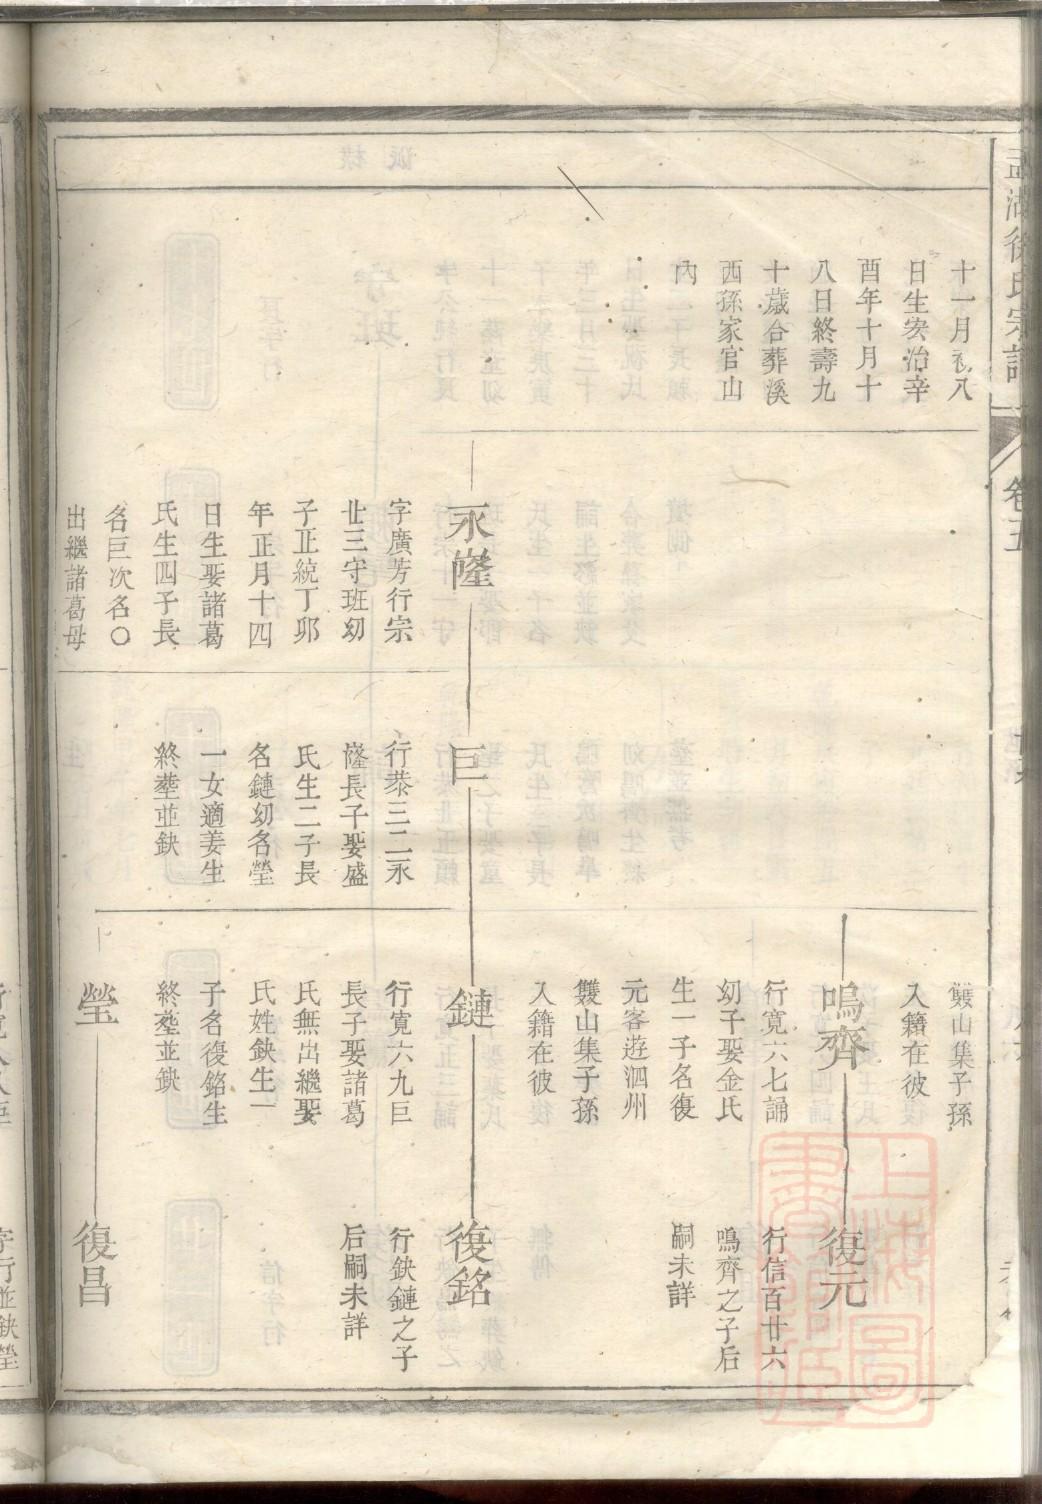 孟湖徐氏宗譜
卷五
十一月初八
日生宏治辛
酉年十月十
八日終壽九
十歲合葬溪
西孫家官山
內
永窿
字廣芳行宗
廿三守班幼
子正統丁卯
年正月十四
日生娶諸葛
氏生四子長
名巨次名〇
出繼諸葛母
巨
行恭三二永
窿長子娶盛
氏生二子長
名鏈幼名瑩
一女適姜生
終塟並缺
雙山集子孫
入籍在彼
鳴齊
行寬六七誦
幼子娶金氏
生一子名復
元客遊泗州
雙山集子孫
入籍在彼
鏈
行寬六九巨
長子娶諸葛
氏無出繼娶
氏姓缺生一
子名復銘生
終塟並缺
瑩
復元
行信百廿六
鳴齊之子后
嗣未詳
復銘
行缺鏈之子
后嗣未詳
復昌
字行並缺瑩